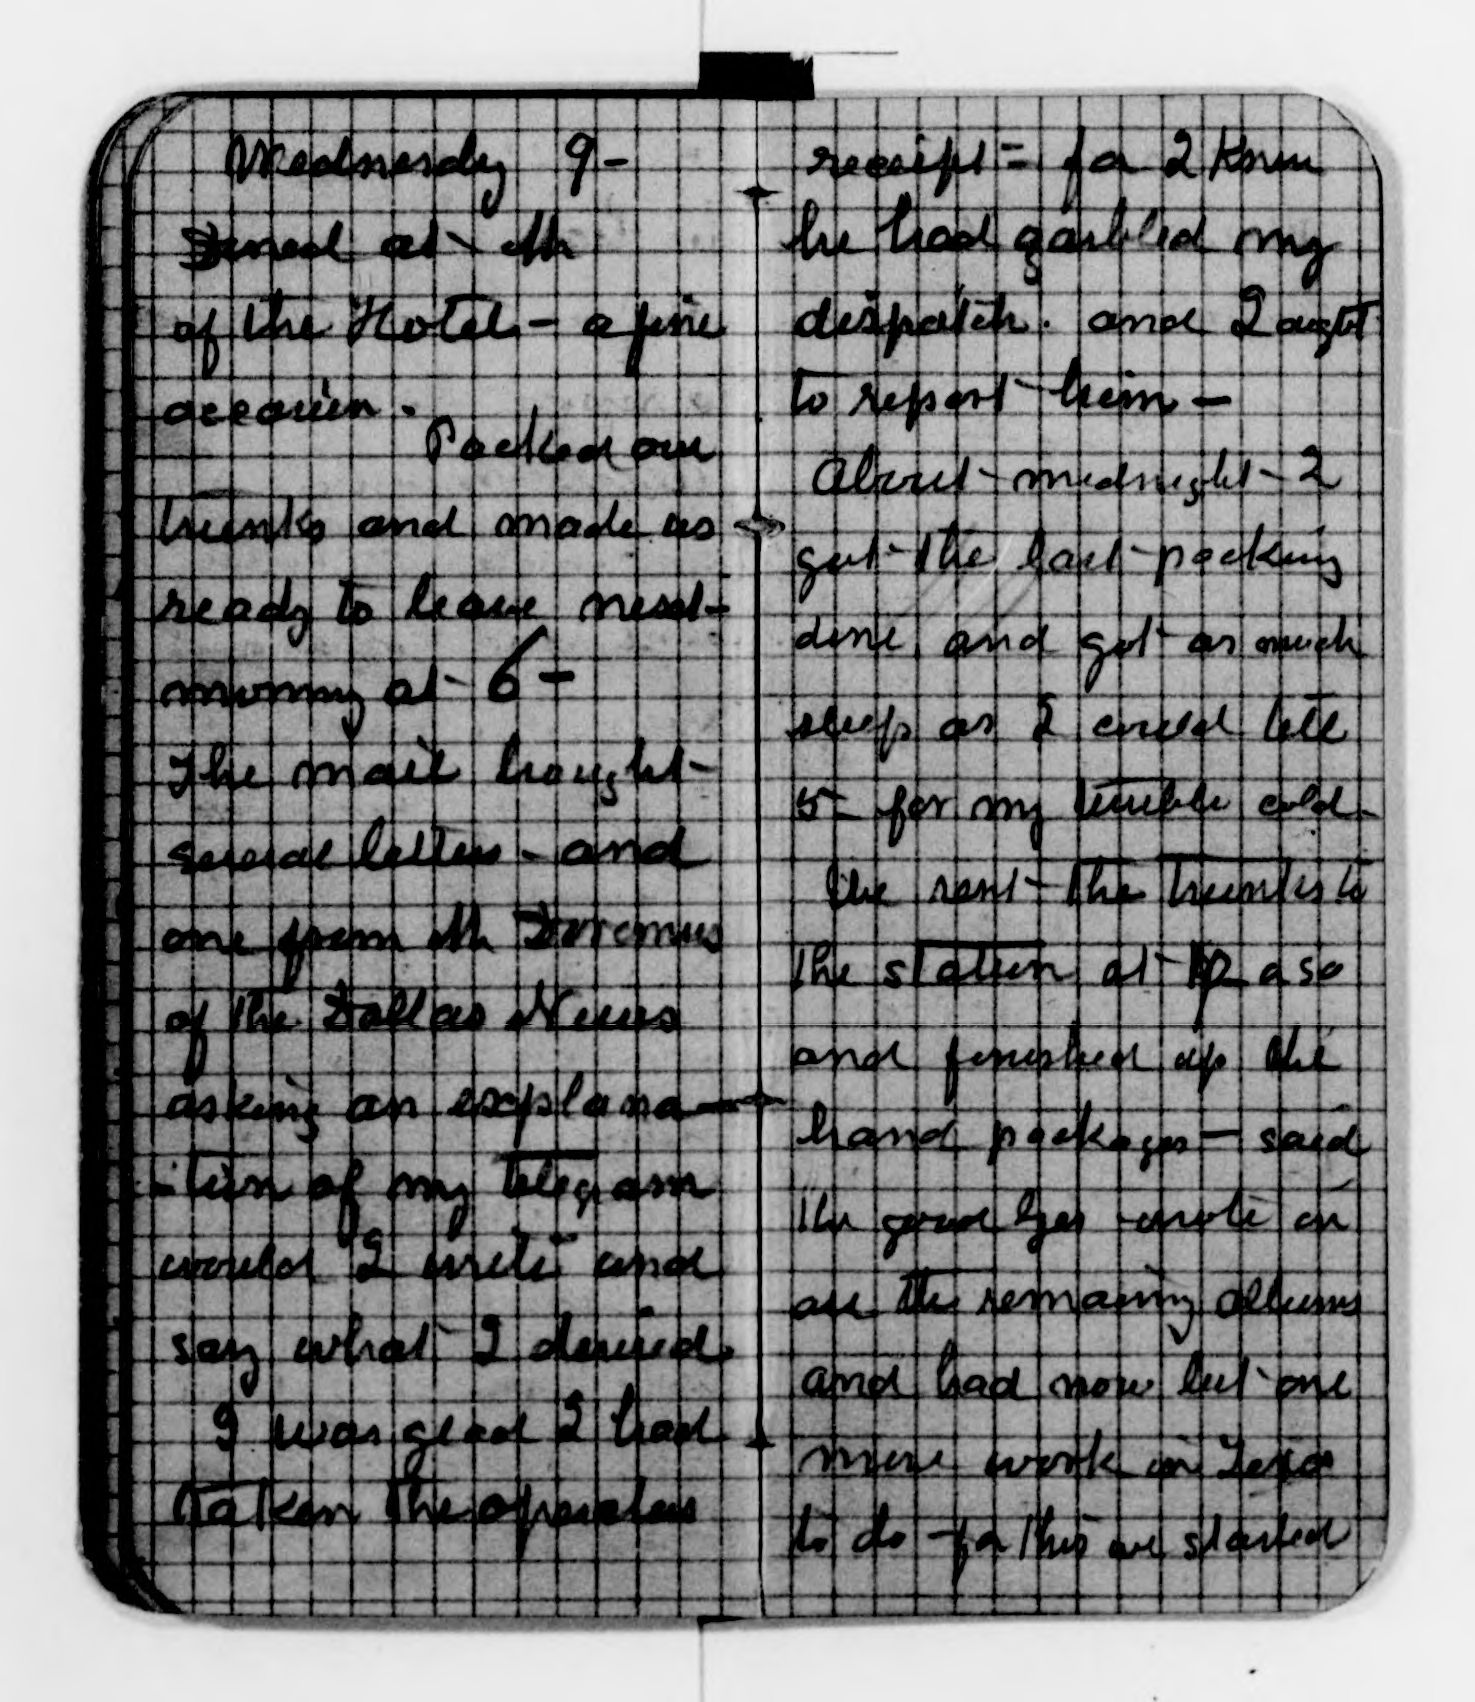 Wednesday 9-
Dined at Mr
of the Hotel - a fine
occasion.
Packed our
trunks and made us
ready to leave next
morning at 6 -
The mail brought
several letters - and
one from Mr Doremus
of the Dallas News
asking an explana-
-tion of my telegram
would I write and
say what I desired.
I was glad I had
taken the operators
receipt = for I knew
he had garbled my
dispatch. and I ought
to report him -
About midnight - I
got the last packing
done, and got as much
sleep as I could till
5 - for my terrible cold -
We sent the trunks to
the station at
and finished up the
hand packages - said
the good byes wrote in
all the remaining albums
and had now but one
more work in Texas
to do - for this we started